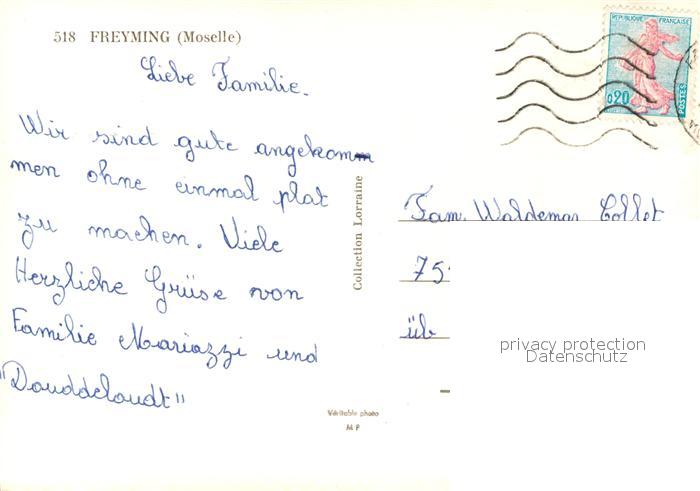 518 FREYMING (Moselle)
RÉPUBLIQUE FRANÇAISE
0,20
POSTES
Liebe Familie.
Wir sind gute angekom
men ohne einmal plat
zu machen. Viele
Herzliche Grüse von
Familie Mariazzi und
"Douddeloudt"
Collection Lorraine
Véritable photo
M P
Fam. Waldemar Collet
75
üb
privacy protection
Datenschutz